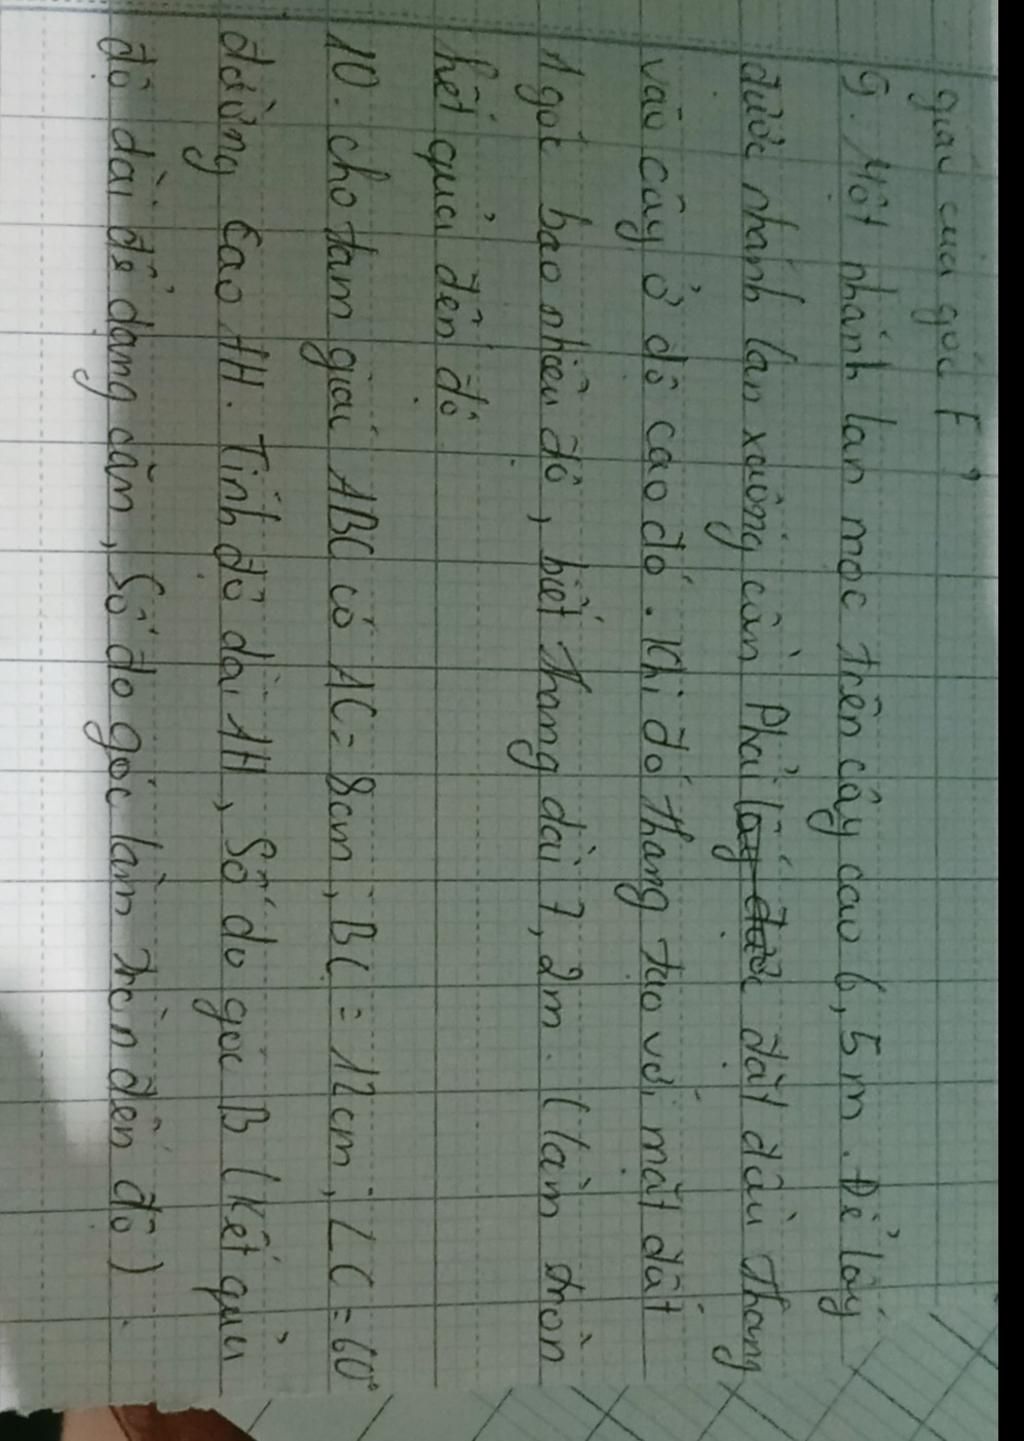 giác của góc F?
9. Một nhánh lan mọc trên cây cao 6,5m. Để lấy
được nhánh lan xuống cần Phải đặt đầu thang
vào cây ở độ cao đó. Khi đó thang tạo với mặt đất
1 góc bao nhiêu độ, biết thang dài 7,2m. (làm tròn
kết quả đến độ
10. cho tam giác ABC có AC = 8cm, BC = 12cm, ∠C = 60°
đường cao AH. Tính độ dài AH, Số đo góc B (kết quả
độ dài để dạng căn, Số đo góc làm tròn đến độ).